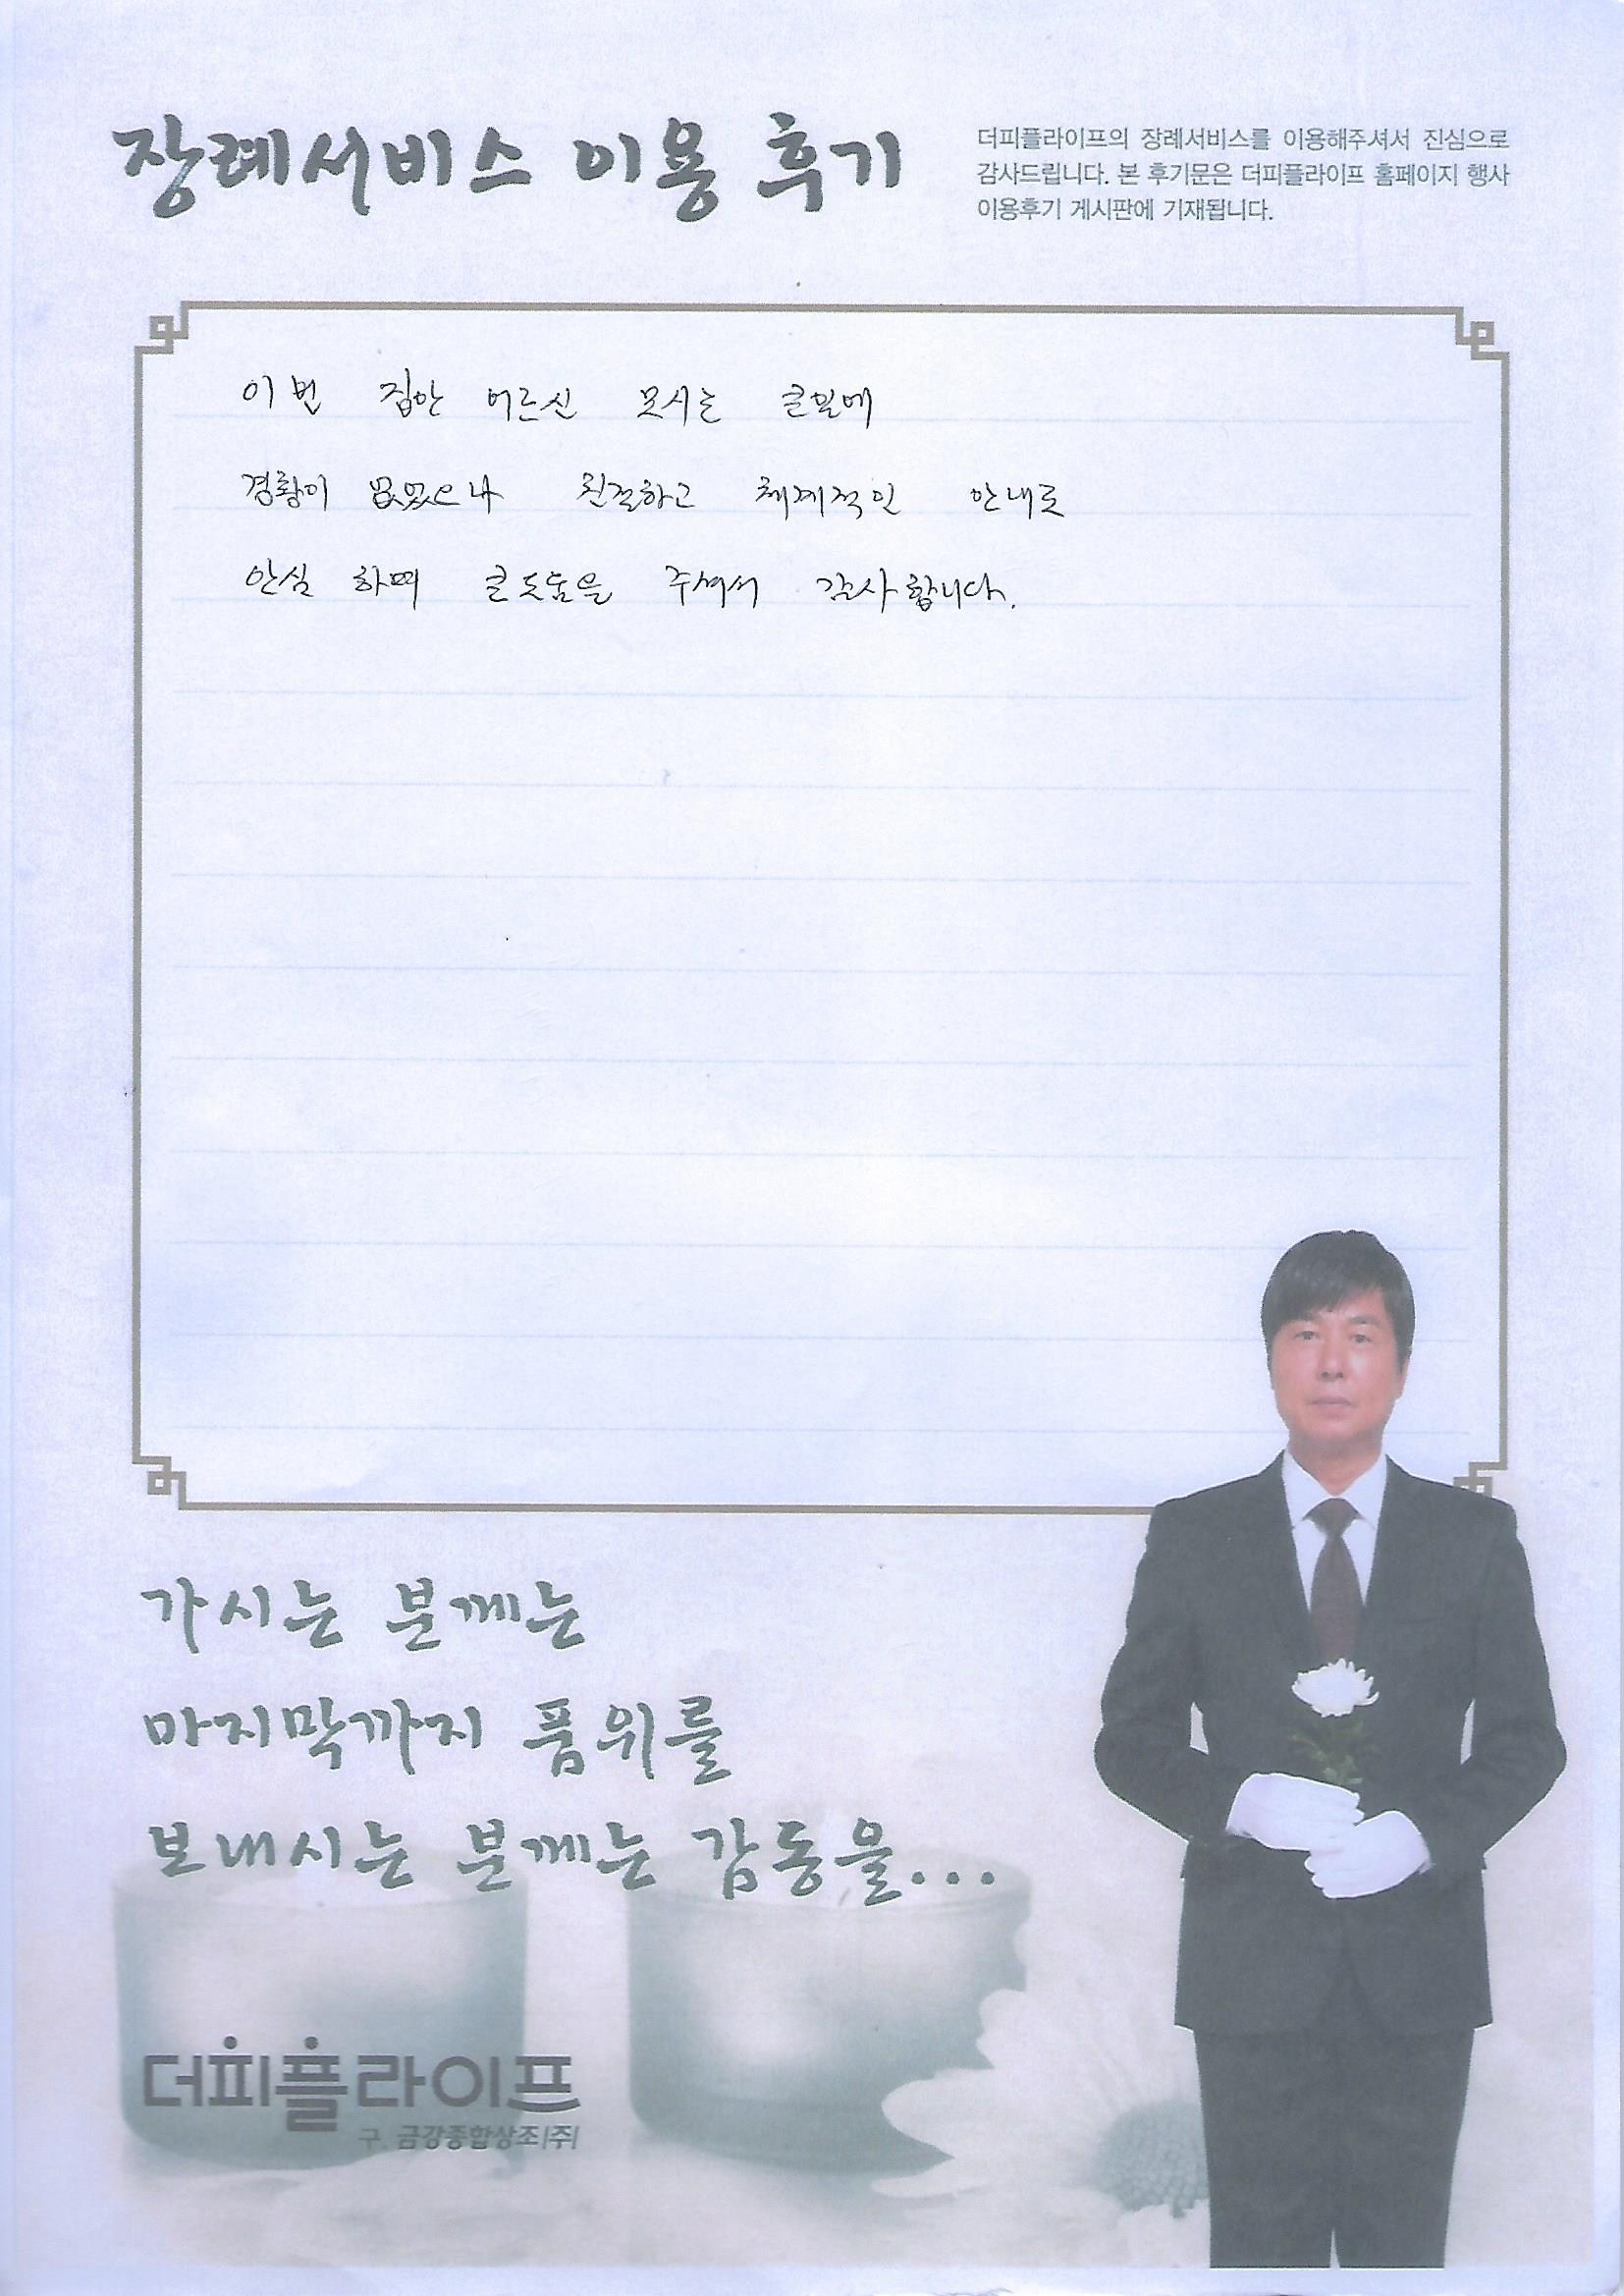 장례서비스 이용 후기
더피플라이프의 장례서비스를 이용해주셔서 진심으로
감사드립니다. 본 후기문은 더피플라이프 홈페이지 행사
이용후기 게시판에 기재됩니다.
이번 집안 어른신 모시는 큰일에
경황이 없었으나 친절하고 체계적인 안내로
안심 하며 큰도움을 주셔서 감사합니다.
가시는 분께는
마지막까지 품위를
보내시는 분께는 감동을...
더피플라이프
구. 금강종합상조(주)